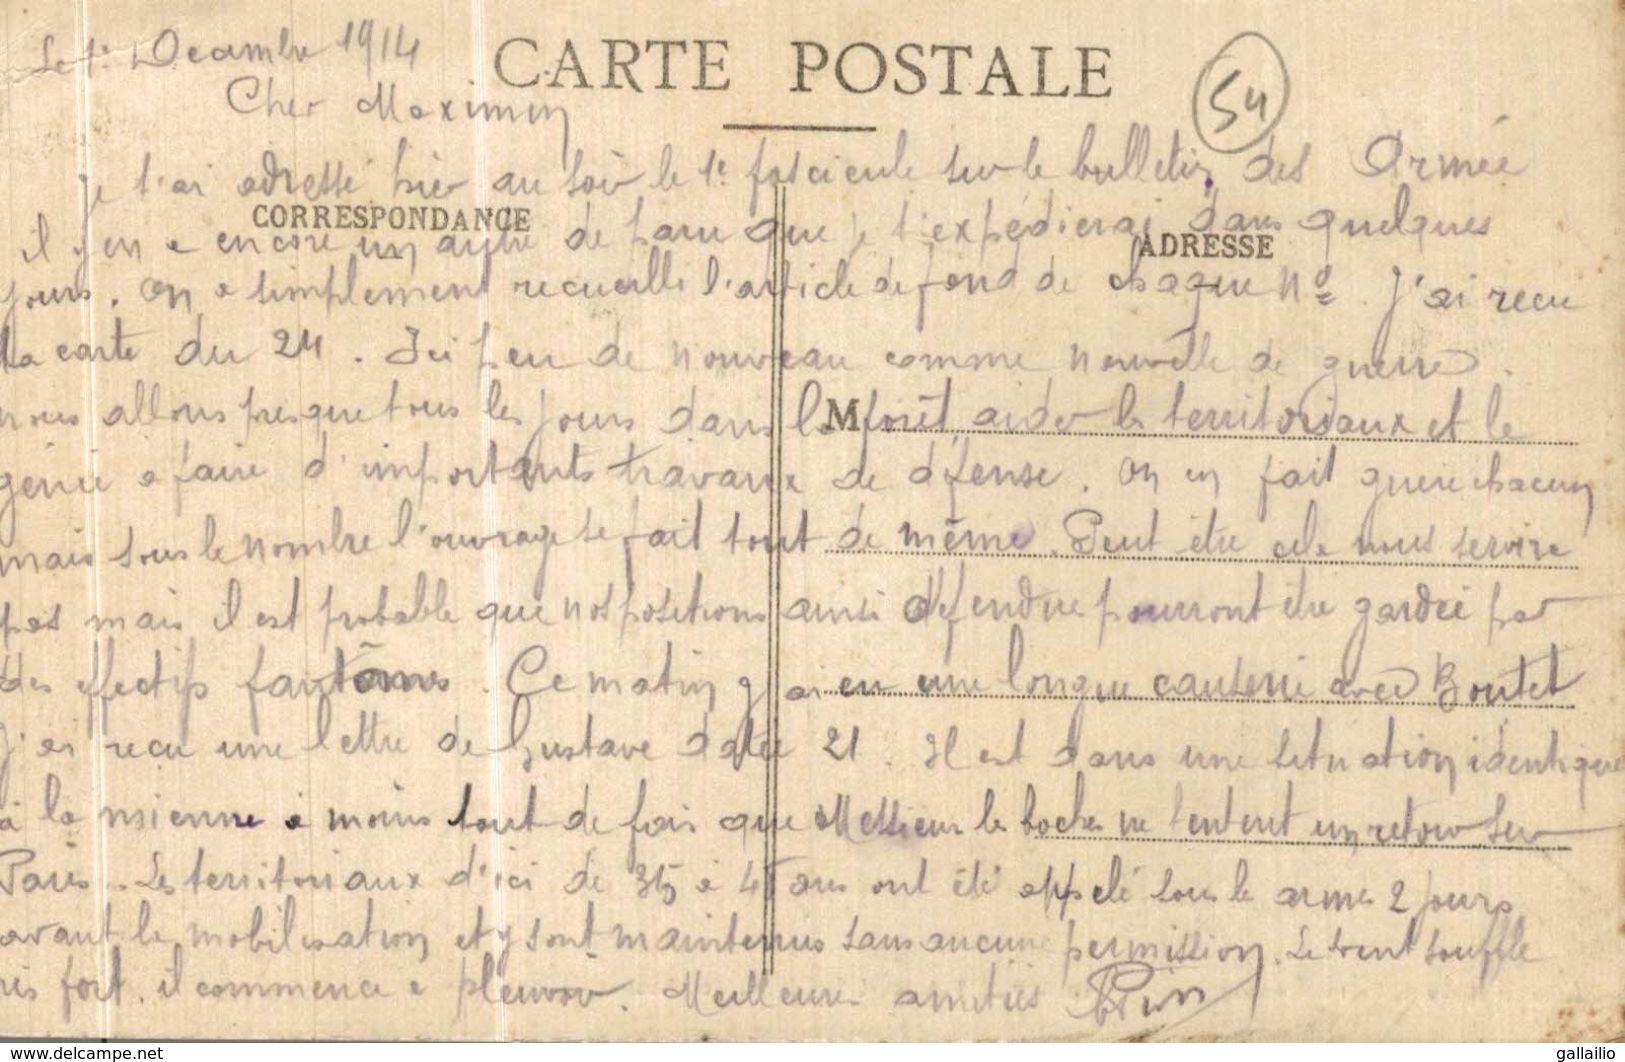 Le 1e Decembre 1914
CARTE POSTALE
54
Cher Maximin
Je t'ai adressé hier au soir le 1e fascicule sur le bulletin des Armée
CORRESPONDANCE
ADRESSE
il y en a encore un autre de paru que je t'expédierai dans quelques
jours. On a simplement recueilli l'article de fond de chaque No. J'ai recu
la carte du 24. Ici peu de nouveau comme nouvelle de guerre.
M
nous allons presque tous les jours dans la forêt aider les territoriaux et le
génie a faire d'importants travaux de défense. On en fait guere chacun
mais sous le nombre l'ouvrage se fait tout de même. Peut etre cela nous servira
pas mais il est probable que nos positions ainsi défendue pourront etre gardée par
des effectifs fantômes. Ce matin j'ai eu une longue causerie avec Boutet
J'ai recu une lettre de Gustave datée 21. Il est dans une situation identique
à la mienne a moins tout de fois que Messieurs les boches ne tentent un retour sur
Paris. Les territoriaux d'ici de 35 a 45 ans ont été appelé sous le armes 2 jours
avant la mobilisation et y sont maintenus sans aucune permission. Le vent souffle
très fort. il commence a pleuvoir. Meilleures amitiés